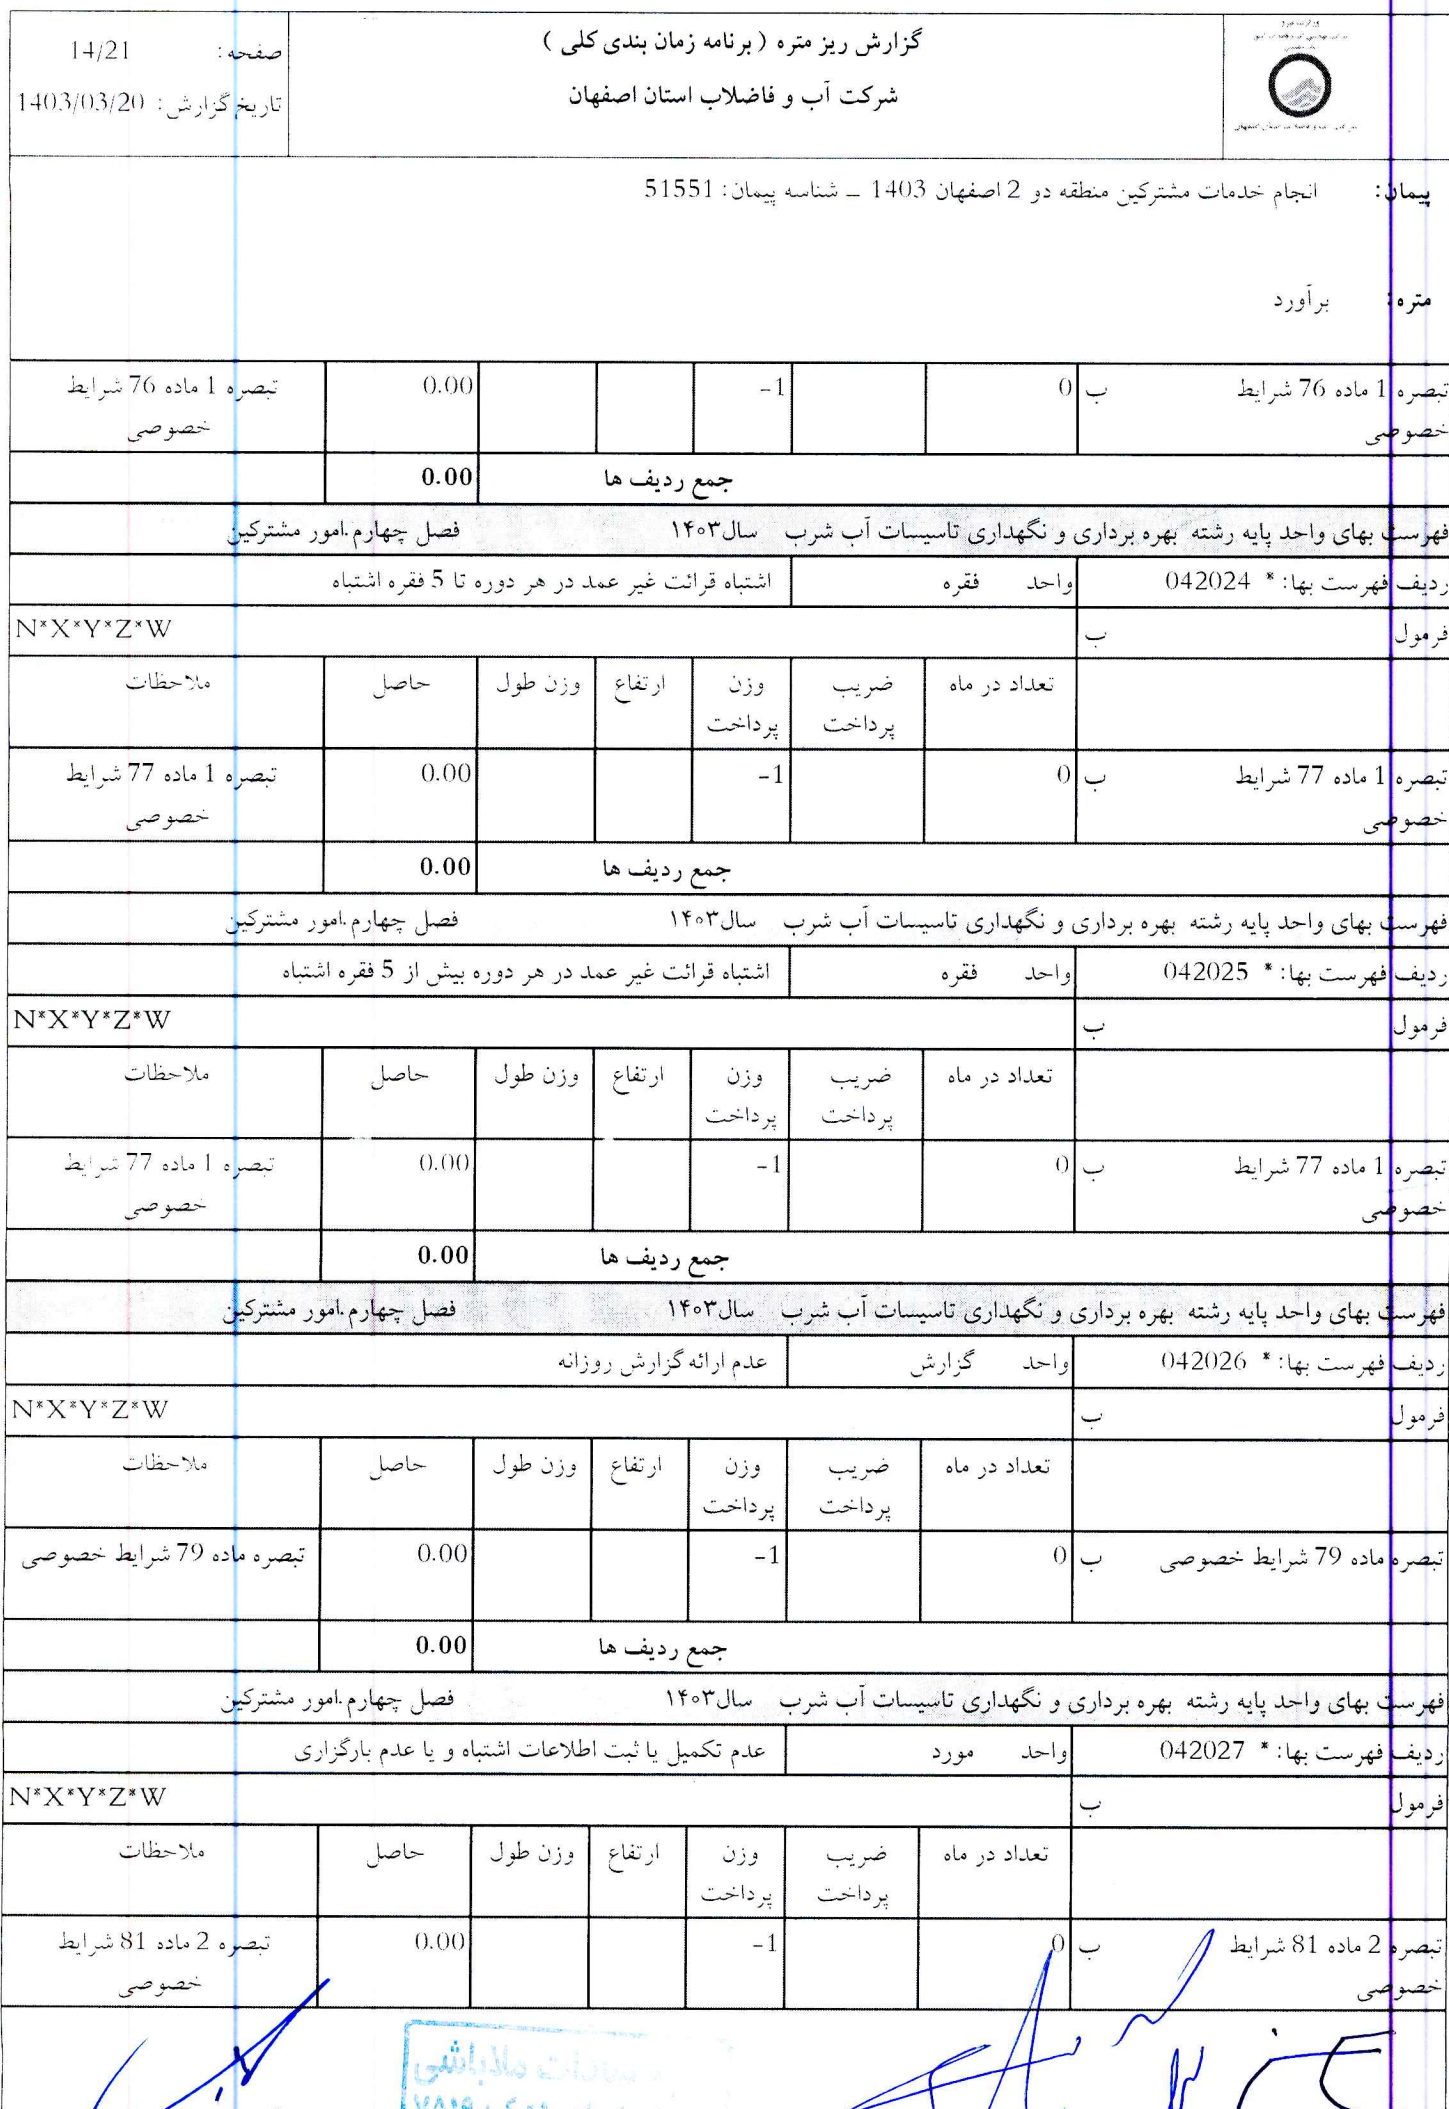 گزارش ریز متره ( برنامه زمان بندی کلی )
شرکت آب و فاضلاب استان اصفهان
صفحه: 14/21
تاریخ گزارش: 1403/03/20
پیمان: انجام خدمات مشترکین منطقه دو 2 اصفهان 1403 _ شناسه پیمان: 51551
متره: برآورد
تبصره 1 ماده 76 شرایط ب 0 -1 0.00 تبصره 1 ماده 76 شرایط
خصوصی خصوصی
جمع ردیف ها 0.00
فهرست بهای واحد پایه رشته بهره برداری و نگهداری تاسیسات آب شرب سال۱۴۰۳ فصل چهارم.امور مشترکین
ردیف فهرست بها: * 042024 واحد فقره اشتباه قرائت غیر عمد در هر دوره تا 5 فقره اشتباه
فرمول ب N*X*Y*Z*W
تعداد در ماه ضریب وزن ارتفاع وزن طول حاصل ملاحظات
پرداخت پرداخت
تبصره 1 ماده 77 شرایط ب 0 -1 0.00 تبصره 1 ماده 77 شرایط
خصوصی خصوصی
جمع ردیف ها 0.00
فهرست بهای واحد پایه رشته بهره برداری و نگهداری تاسیسات آب شرب سال۱۴۰۳ فصل چهارم.امور مشترکین
ردیف فهرست بها: * 042025 واحد فقره اشتباه قرائت غیر عمد در هر دوره بیش از 5 فقره اشتباه
فرمول ب N*X*Y*Z*W
تعداد در ماه ضریب وزن ارتفاع وزن طول حاصل ملاحظات
پرداخت پرداخت
تبصره 1 ماده 77 شرایط ب 0 -1 0.00 تبصره 1 ماده 77 شرایط
خصوصی خصوصی
جمع ردیف ها 0.00
فهرست بهای واحد پایه رشته بهره برداری و نگهداری تاسیسات آب شرب سال۱۴۰۳ فصل چهارم.امور مشترکین
ردیف فهرست بها: * 042026 واحد گزارش عدم ارائه گزارش روزانه
فرمول ب N*X*Y*Z*W
تعداد در ماه ضریب وزن ارتفاع وزن طول حاصل ملاحظات
پرداخت پرداخت
تبصره ماده 79 شرایط خصوصی ب 0 -1 0.00 تبصره ماده 79 شرایط خصوصی
جمع ردیف ها 0.00
فهرست بهای واحد پایه رشته بهره برداری و نگهداری تاسیسات آب شرب سال۱۴۰۳ فصل چهارم.امور مشترکین
ردیف فهرست بها: * 042027 واحد مورد عدم تکمیل یا ثبت اطلاعات اشتباه و یا عدم بارگزاری
فرمول ب N*X*Y*Z*W
تعداد در ماه ضریب وزن ارتفاع وزن طول حاصل ملاحظات
پرداخت پرداخت
تبصره 2 ماده 81 شرایط ب 0 -1 0.00 تبصره 2 ماده 81 شرایط
خصوصی خصوصی